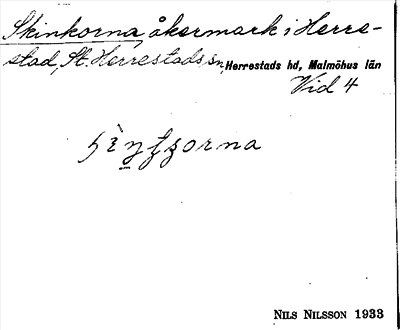 Skinkorna, åkermark i Herre-
stad, St. Herrestads sn, Herrestads hd, Malmöhus län
Vid 4
NILS NILSSON 1933